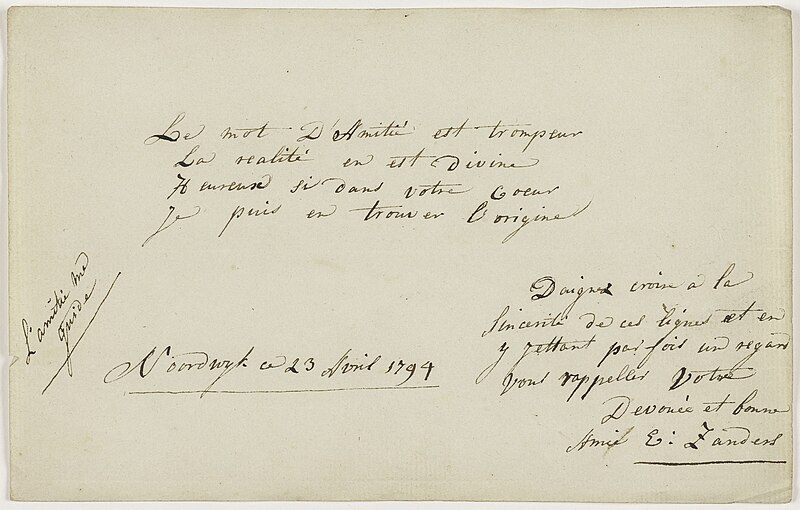 Le mot D'Amitié est trompeur
La realité en est Divine
Heureux si dans votre Coeur
Je puis en trouver l'origine
L'amitié me
guide
Noordwyk ce 23 Avril 1794
Daignez croire a la
Sincerité de ces lignes et en
y jettant par fois un regard
vous rappeller Votre
Devouée et bonne
Amie E: Zanders